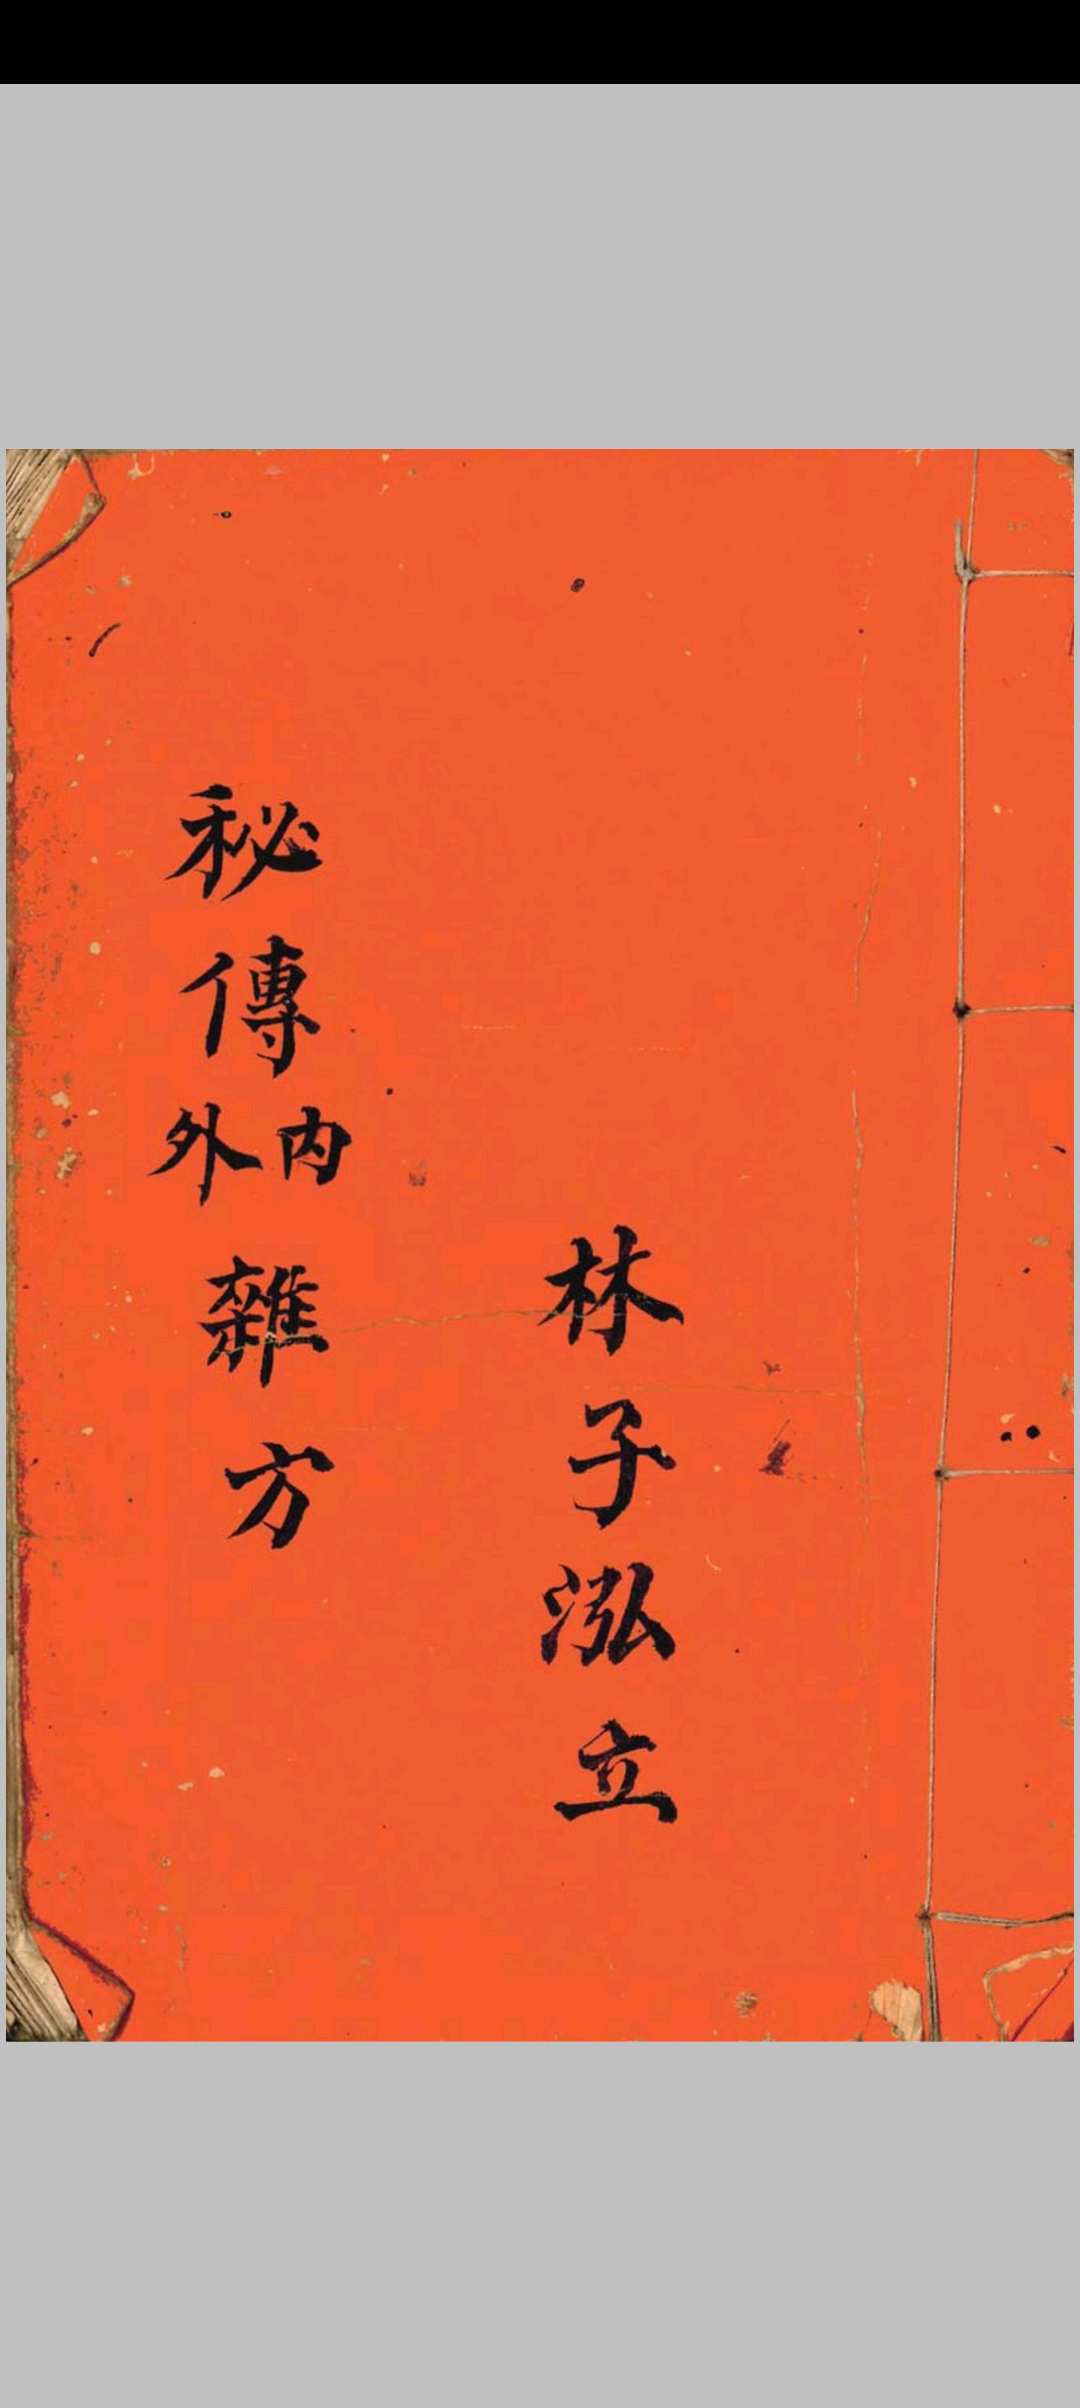 林子泓立
秘傳内外雜方